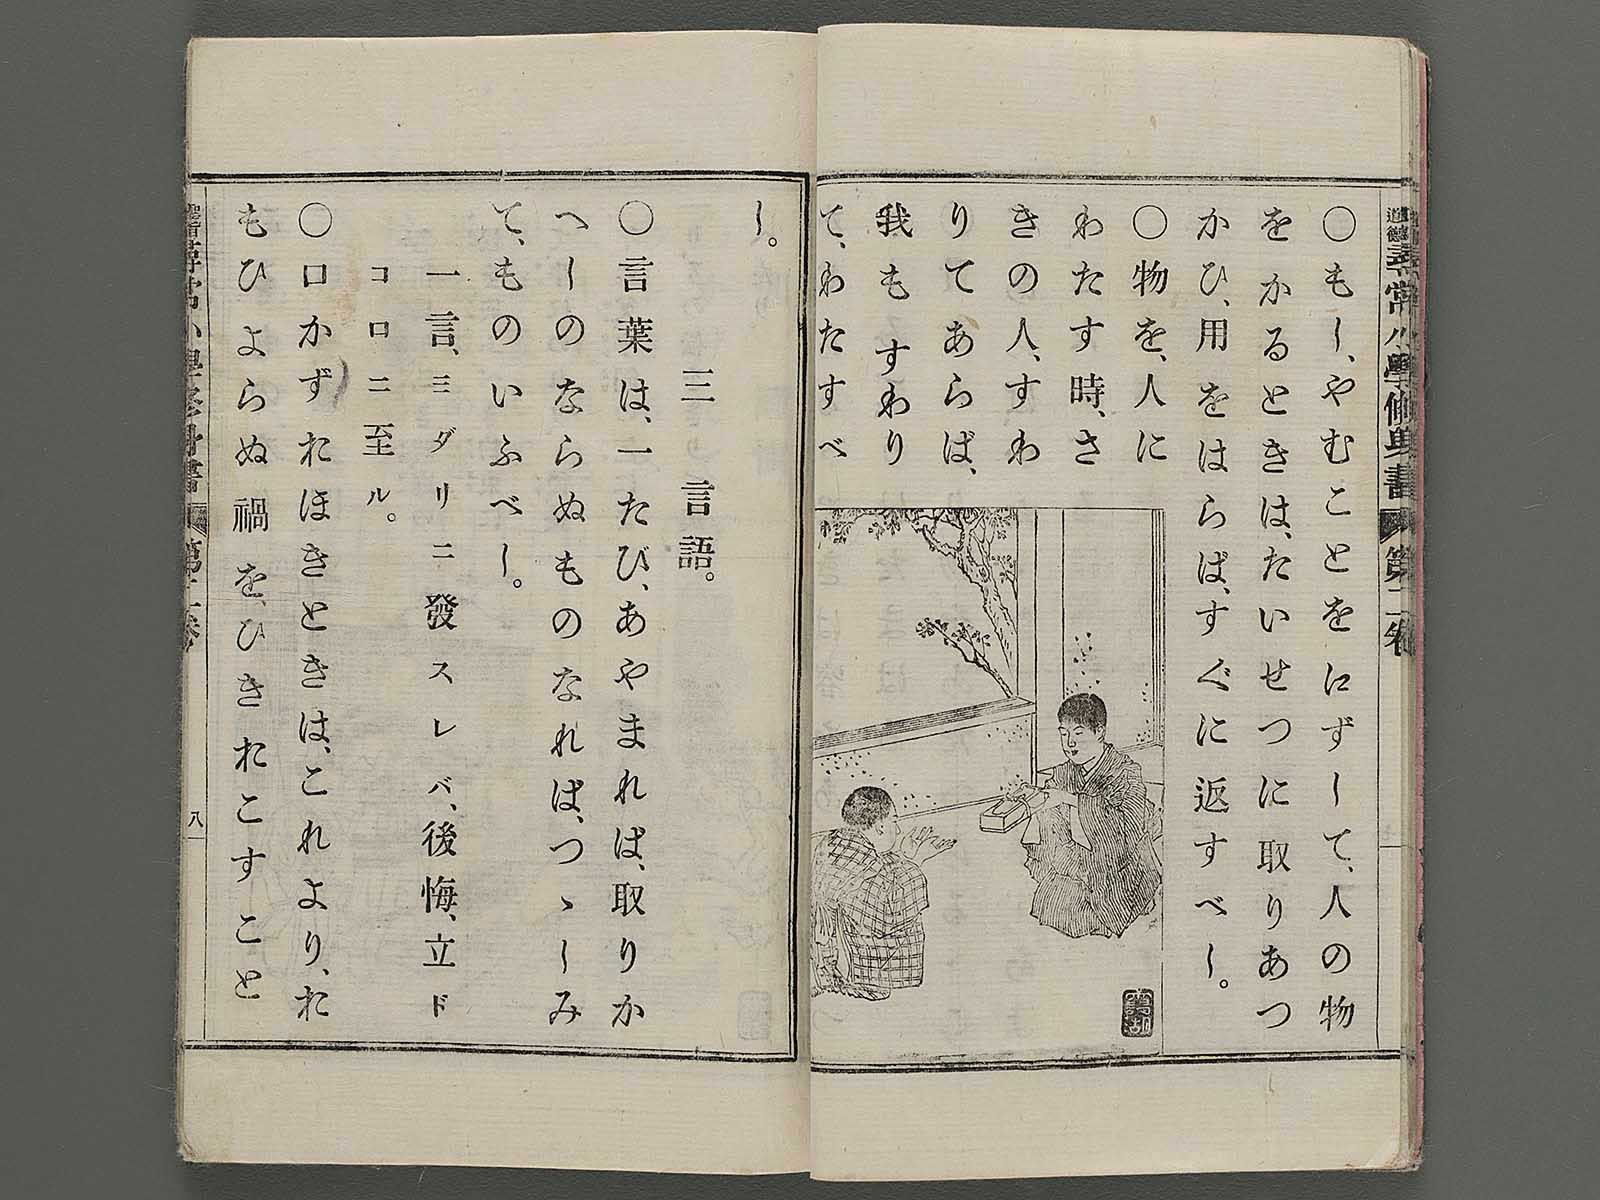 尋常小學修身書 第二卷
〇もし、やむことをえずして、人の物
をかるときは、たいせつに取りあつ
かひ、用をはらば、すぐに返すべし。
〇物を、人に
わたす時、さ
きの人、すわ
りてあらば、
我もすわり
て、わたすべ
し。
三 言語。
〇言葉は、一たび、あやまれば、取りか
へしのならぬものなれば、つゝしみ
て、ものいふべし。
一言、ミダリニ發スレバ、後悔、立ド
コロニ至ル。
〇口かずおほきときは、これより、お
もひよらぬ禍を、ひきおこすこと
八